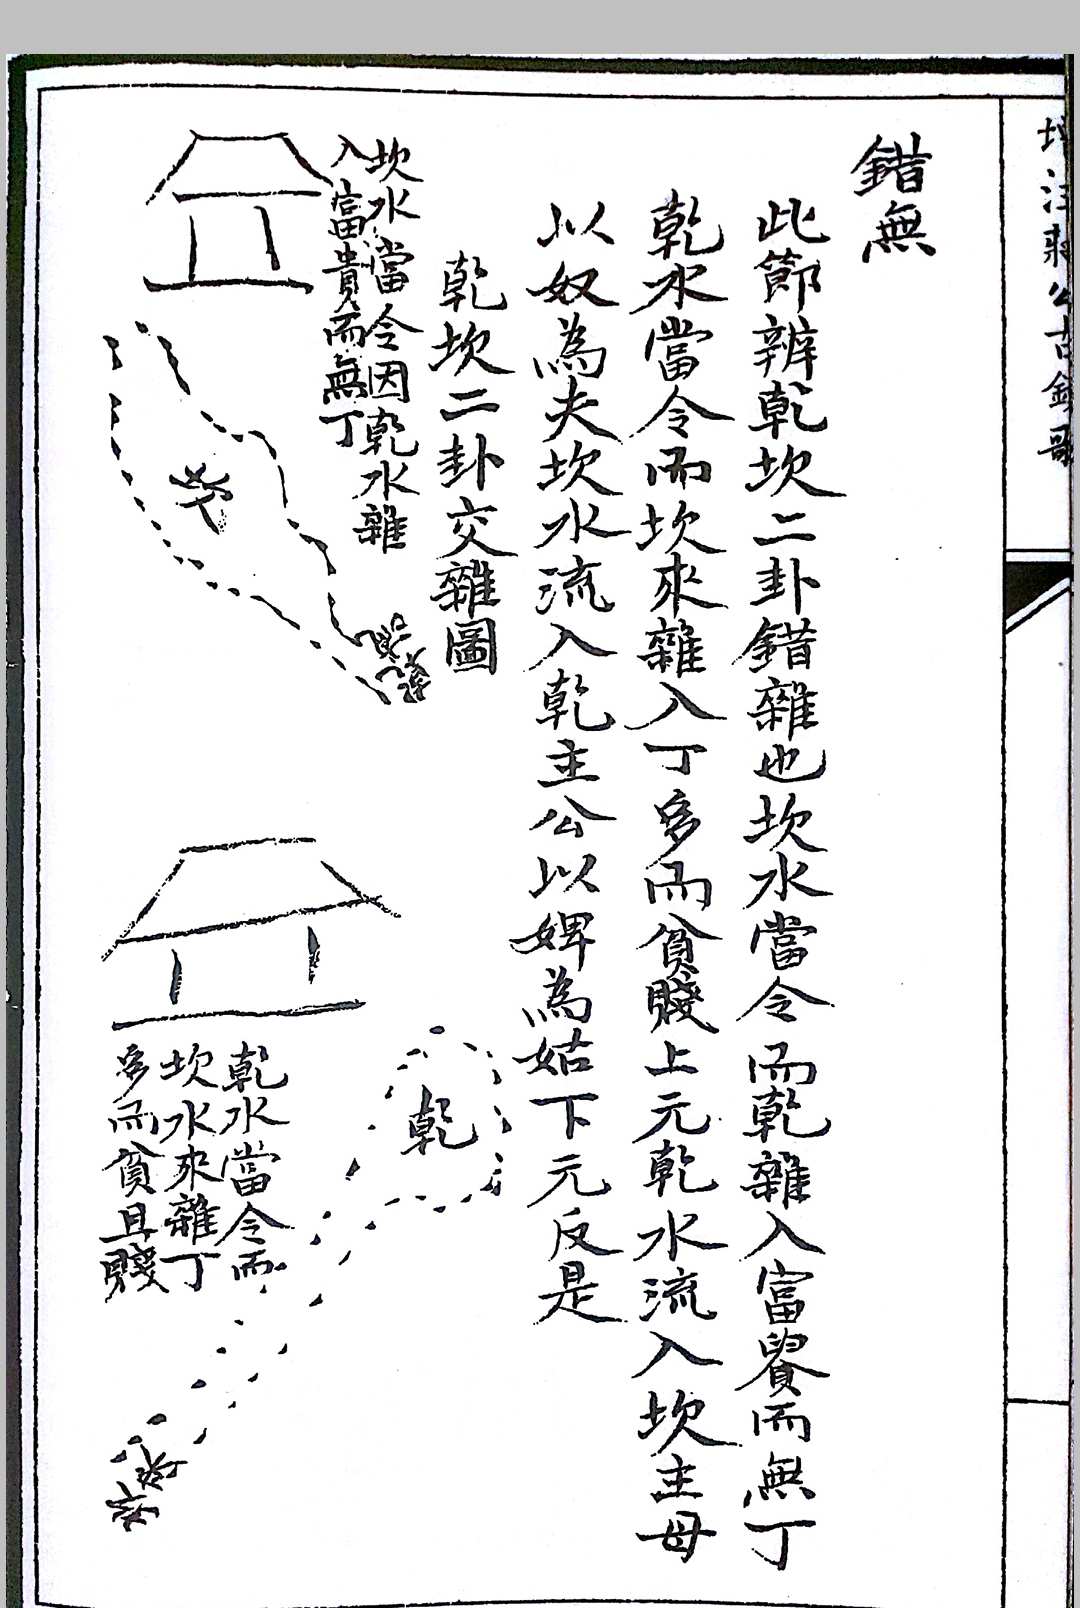 注蔣公古鏡歌
錯無
此節辨乾坎二卦錯雜也坎水當令而乾雜入富貴而無丁
乾水當令而坎來雜入丁多而貧賤上元乾水流入坎主母
以奴為夫坎水流入乾主公以婢為姑下元反是
乾坎二卦交雜圖
坎水當令因乾水雜
入富貴而無丁
坎
乾
乾水當令而
坎水來雜丁
多而貧且賤